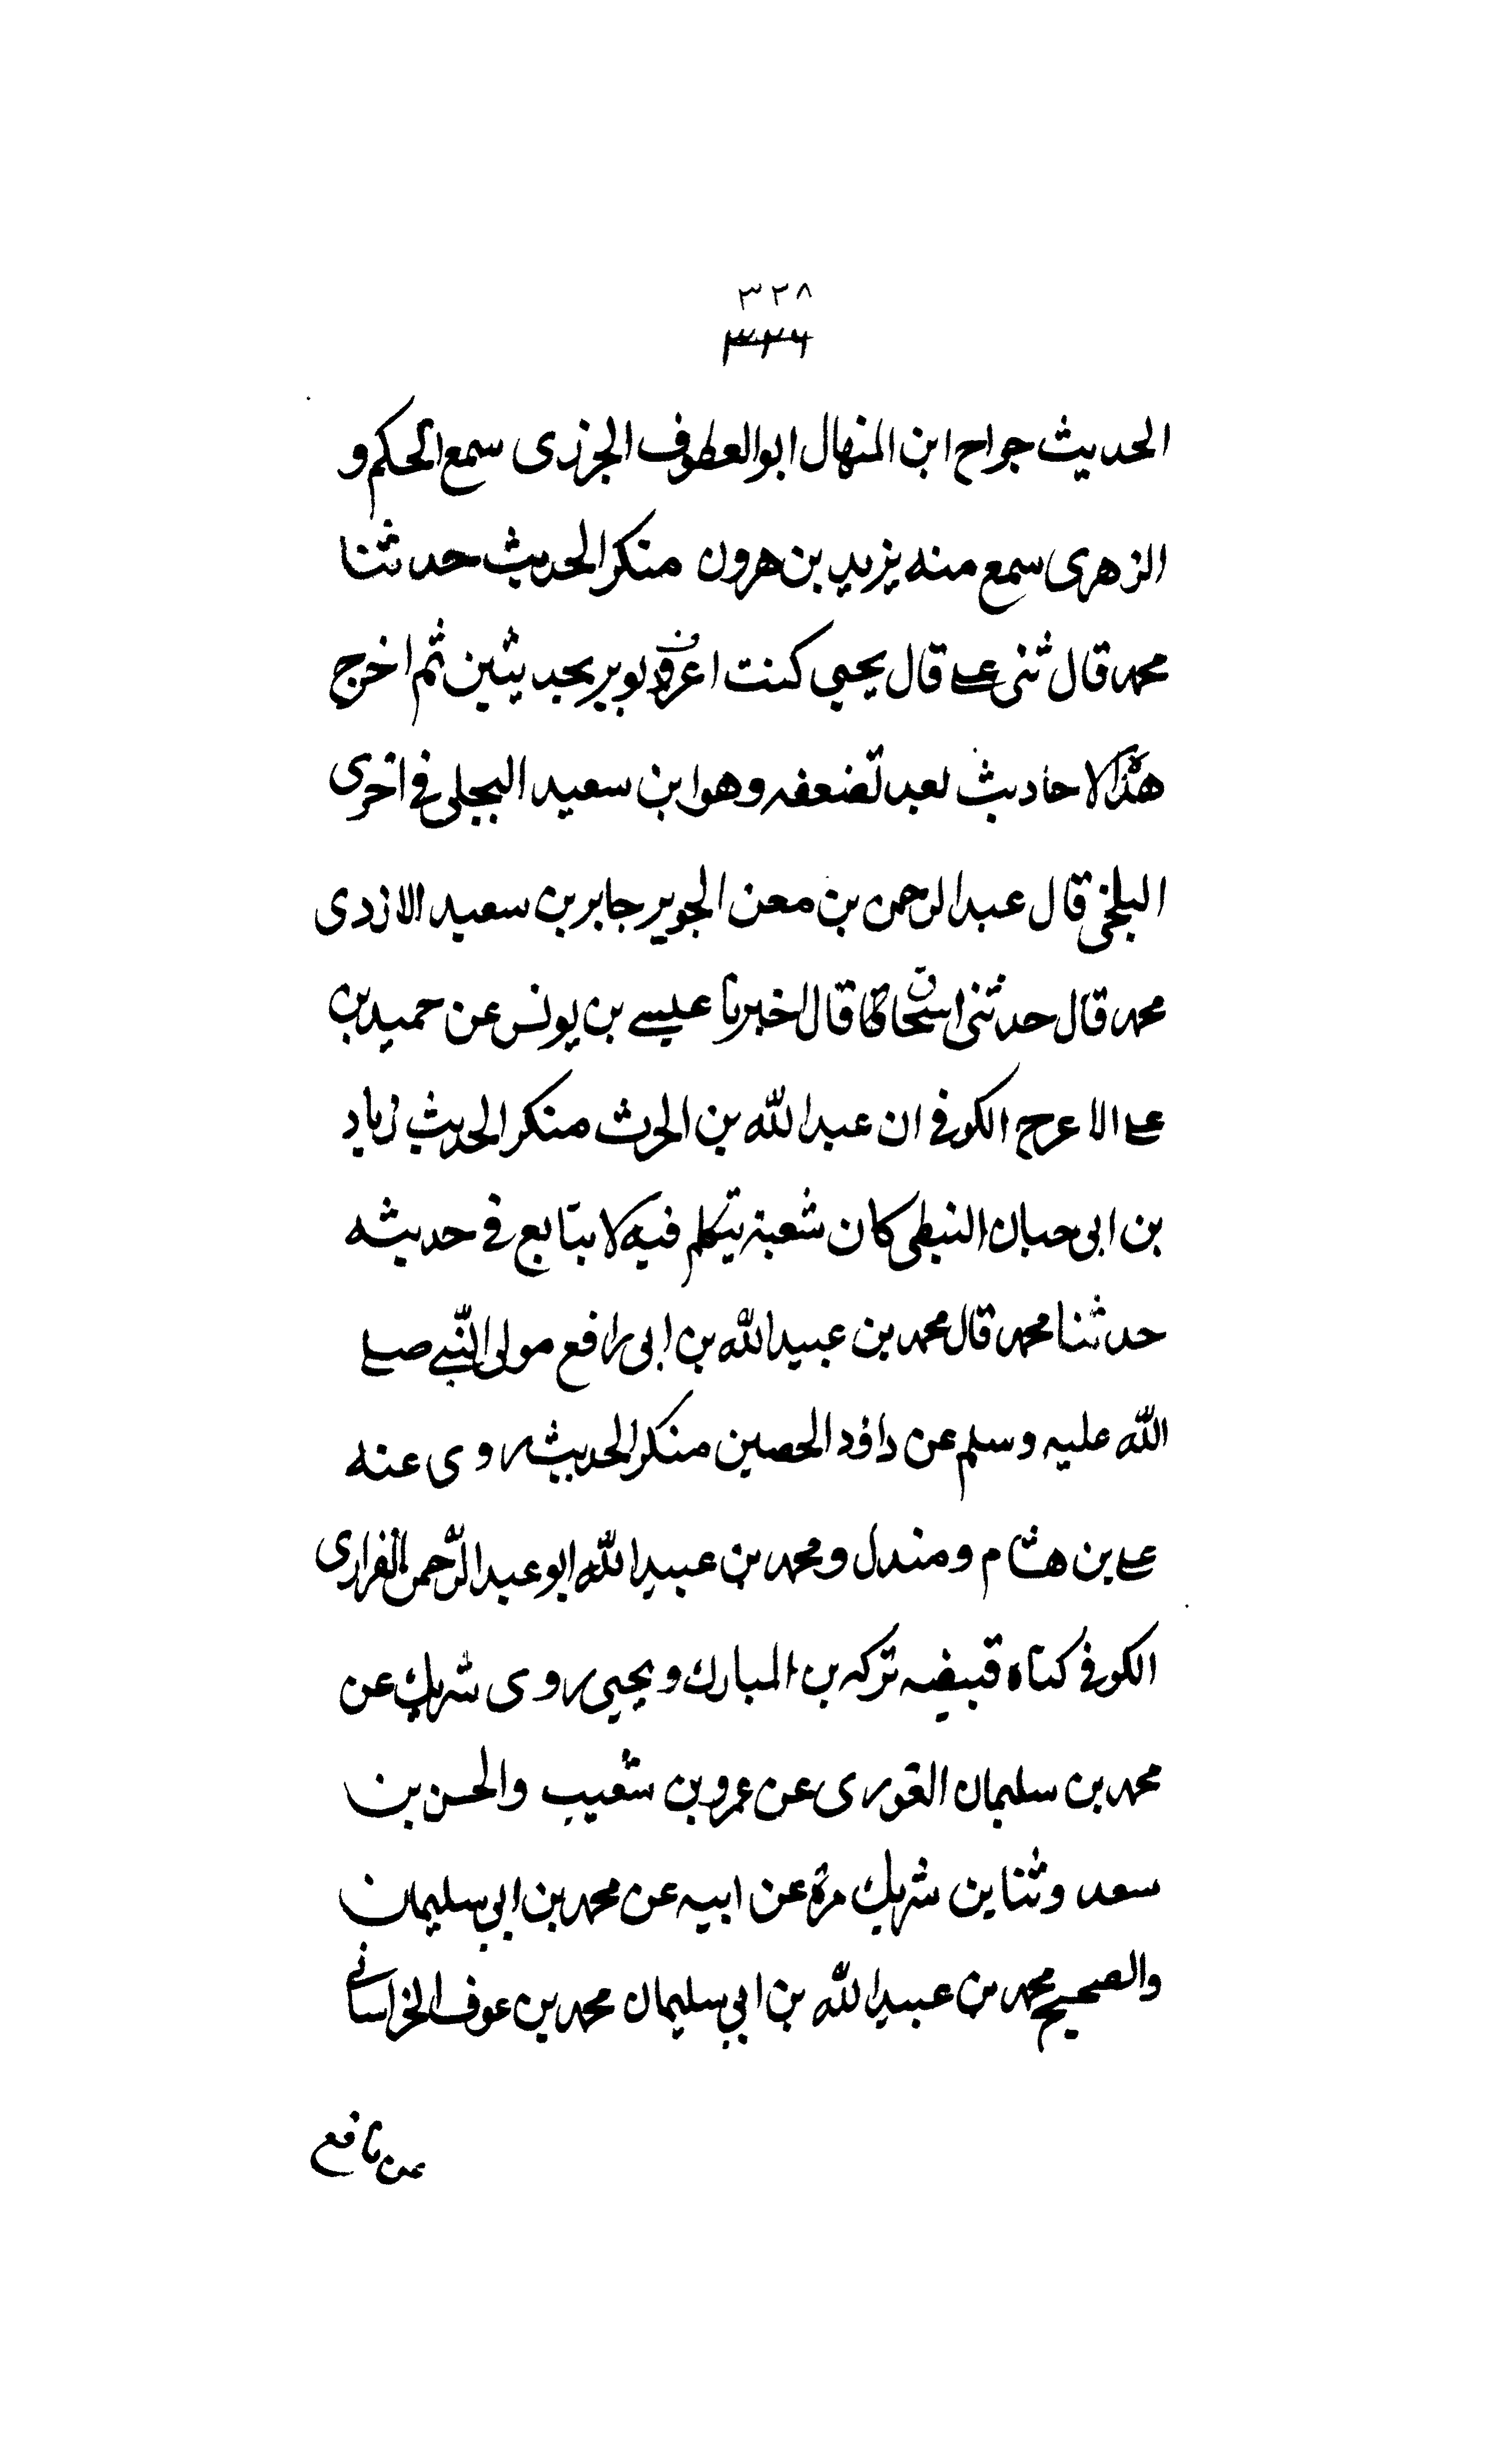 ٣٢٨
٣٢٦
الحديث جراح ابن المنهال ابو العطوف الجزرى سمع الحكم و
الزهرى سمع منه يزيد بن هرون منكر الحديث حدثنا
محمد قال ثنى على قال يحيى كنت اعرف جويبر بحديثين ثم اخرج
هذه الاحاديث بعد تضعفه وهو ابن سعيد البجلى فى اخرى
البلخى قال عبد الرحمن بن معن الجويبر جابر بن سعيد الازدى
محمد قال حدثنى اسحاق قال اخبرنا عيسى بن يونس عن حميد بن
على الاعرج الكوفى ان عبد الله بن الحرث منكر الحديث زياد
بن ابى حبان النبطى كان شعبة يتكلم فيه لا يتابع فى حديثه
حدثنا محمد قال محمد بن عبيد الله بن ابى رافع مولى النبى صلى
الله عليه وسلم عن داؤد الحصين منكر الحديث روى عنه
على بن هشام ومندل ومحمد بن عبيد الله ابو عبد الرحمن الفزارى
الكوفى كناه قبيضه تركه بن المبارك ويحيى روى شريك عن
محمد بن سليمان العزرى عن عمرو بن شعيب والحسن بن
سعد وثنا بن شريك مرة عن ابيه عن محمد بن ابى سليمان
والصحيح محمد بن عبيد الله بن ابى سليمان محمد بن عوف الخراسانى
عن نافع